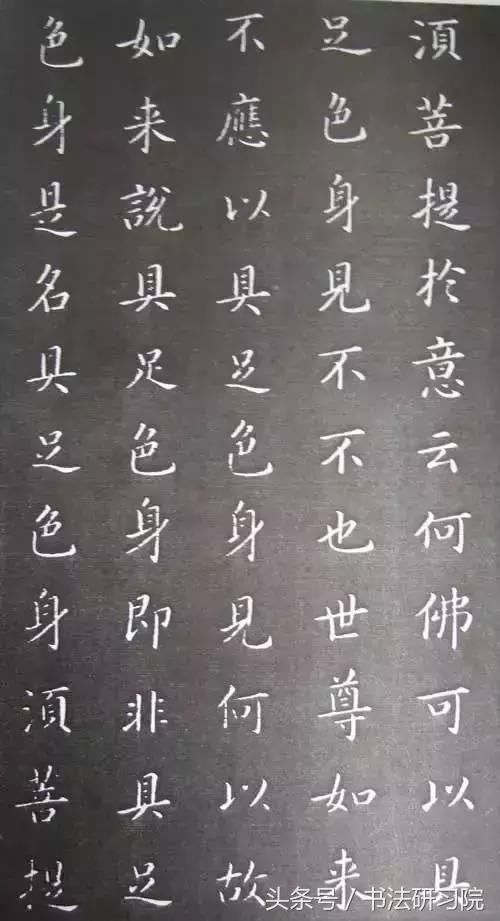 須菩提於意云何佛可以具
足色身見不不也世尊如来
不應以具足色身見何以故
如来說具足色身即非具足
色身是名具足色身須菩提
头条号/书法研习院